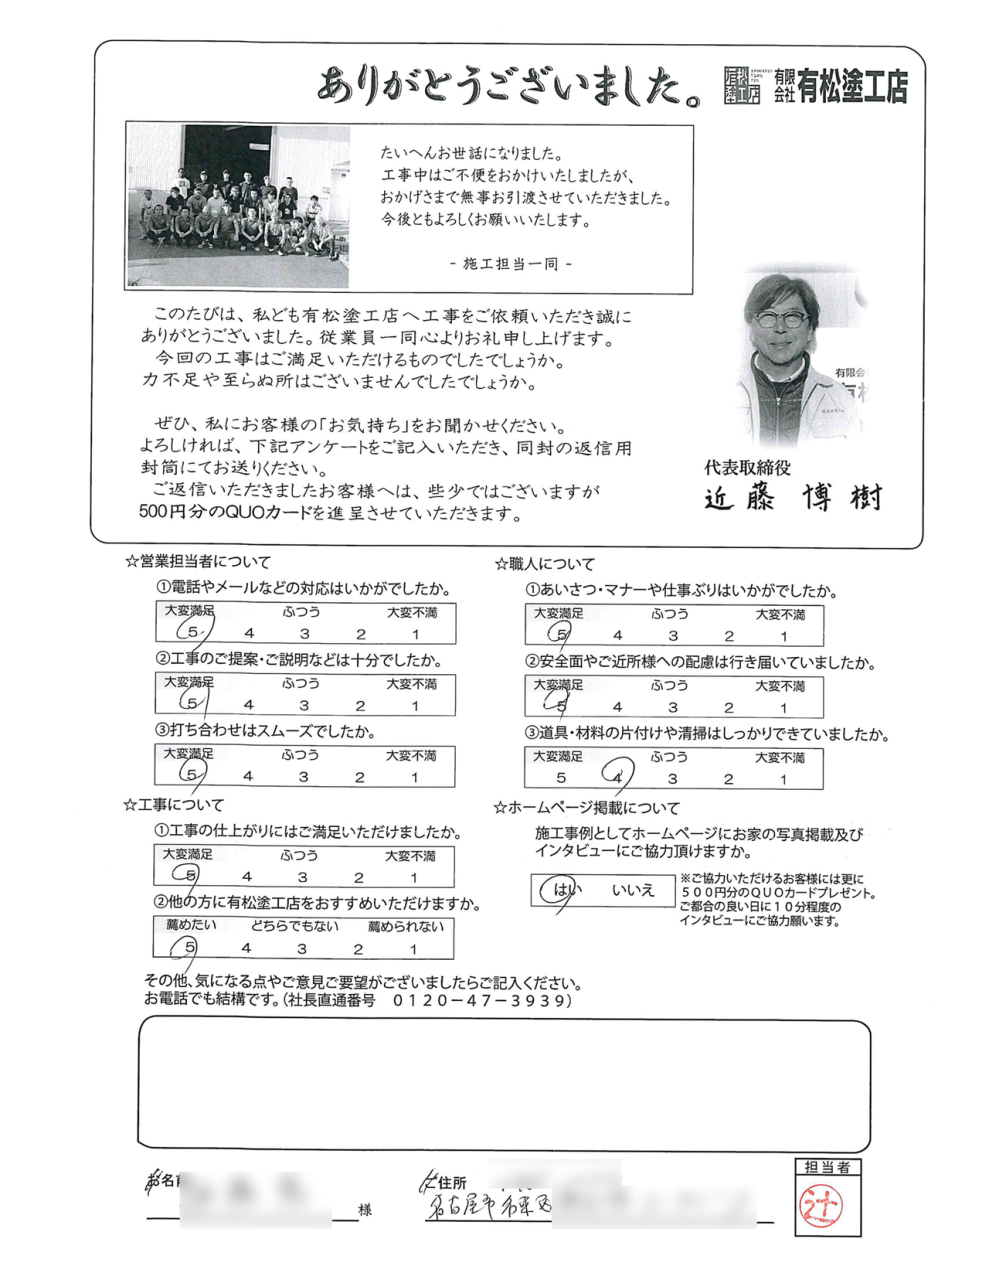 ありがとうございました。
有限会社 有松塗工店
たいへんお世話になりました。
工事中はご不便をおかけいたしましたが、
おかげさまで無事お引渡させていただきました。
今後ともよろしくお願いいたします。
- 施工担当一同 -
このたびは、私ども有松塗工店へ工事をご依頼いただき誠に
ありがとうございました。従業員一同心よりお礼申し上げます。
今回の工事はご満足いただけるものでしたでしょうか。
力不足や至らぬ所はございませんでしたでしょうか。
ぜひ、私にお客様の「お気持ち」をお聞かせください。
よろしければ、下記アンケートをご記入いただき、同封の返信用
封筒にてお送りください。
ご返信いただきましたお客様へは、些少ではございますが
500円分のQUOカードを進呈させていただきます。
代表取締役
近藤 博樹
☆営業担当者について
①電話やメールなどの対応はいかがでしたか。
大変満足 ふつう 大変不満
5 4 3 2 1
②工事のご提案・ご説明などは十分でしたか。
大変満足 ふつう 大変不満
5 4 3 2 1
③打ち合わせはスムーズでしたか。
大変満足 ふつう 大変不満
5 4 3 2 1
☆工事について
①工事の仕上がりにはご満足いただけましたか。
大変満足 ふつう 大変不満
5 4 3 2 1
②他の方に有松塗工店をおすすめいただけますか。
薦めたい どちらでもない 薦められない
5 4 3 2 1
☆職人について
①あいさつ・マナーや仕事ぶりはいかがでしたか。
大変満足 ふつう 大変不満
5 4 3 2 1
②安全面やご近所様への配慮は行き届いていましたか。
大変満足 ふつう 大変不満
5 4 3 2 1
③道具・材料の片付けや清掃はしっかりできていましたか。
大変満足 ふつう 大変不満
5 4 3 2 1
☆ホームページ掲載について
施工事例としてホームページにお家の写真掲載及び
インタビューにご協力頂けますか。
はい いいえ
※ご協力いただけるお客様には更に
500円分のQUOカードプレゼント。
ご都合の良い日に10分程度の
インタビューにご協力願います。
その他、気になる点やご意見ご要望がございましたらご記入ください。
お電話でも結構です。(社長直通番号 0120-47-3939)
お名前 様
ご住所
名古屋市名東区
担当者
辻